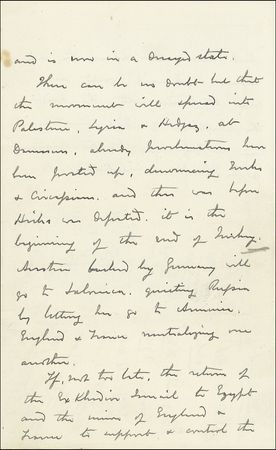 and is now in a decayed state.
There can be no doubt but that
the movement will spread into
Palestine, Syria & Hedjaz, at
Damascus, already proclamations have
been posted up, denouncing Turks
& Circassians, and this was before
Hicks was defeated. it is the
beginning of the end of Turkey.
Austria backed by Germany will
go to Salonica, quieting Russia
by letting her go to Armenia.
England & France neutralizing one
another.
If, not too late, the return of
the Ex Khedive Ismail to Egypt
and the union of England &
France to support & control the